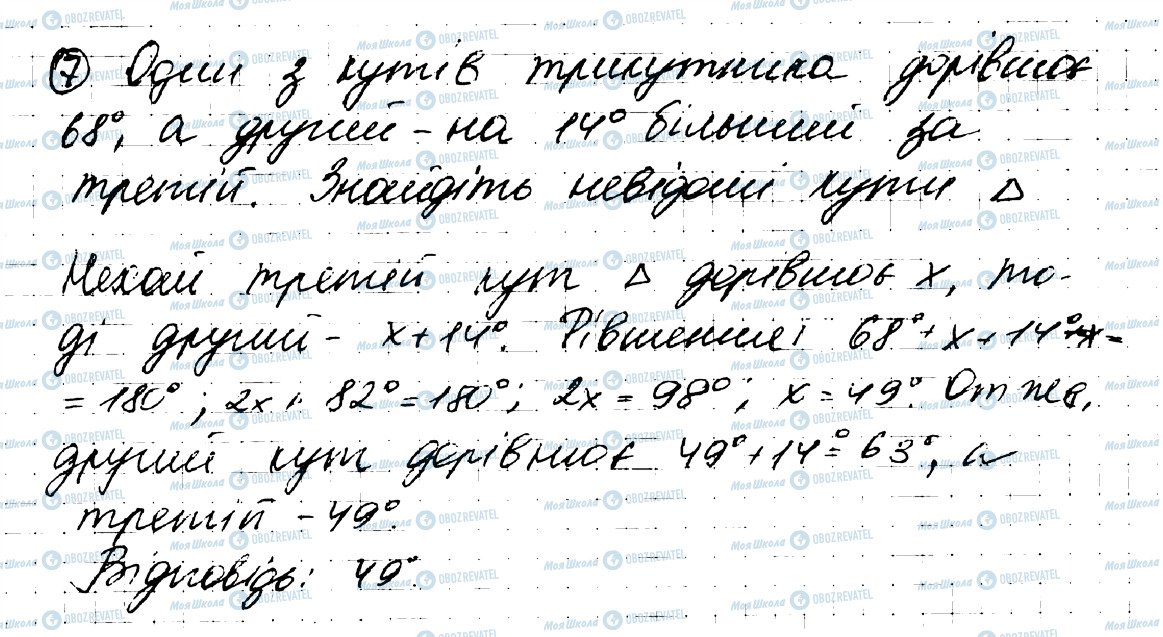 7 Один з кутів трикутника дорівнює
68°, а другий - на 14° більший за
третій. Знайдіть невідомі кути △
Нехай третій кут △ дорівнює x, то-
ді другий - x + 14°. Рівняння: 68° + x + 14° + x =
= 180°; 2x + 82° = 180°; 2x = 98°; x = 49°. Отже,
другий кут дорівнює 49° + 14° = 63°, а
третій - 49°.
Відповідь: 49°
Моя Школа OBOZREVATEL